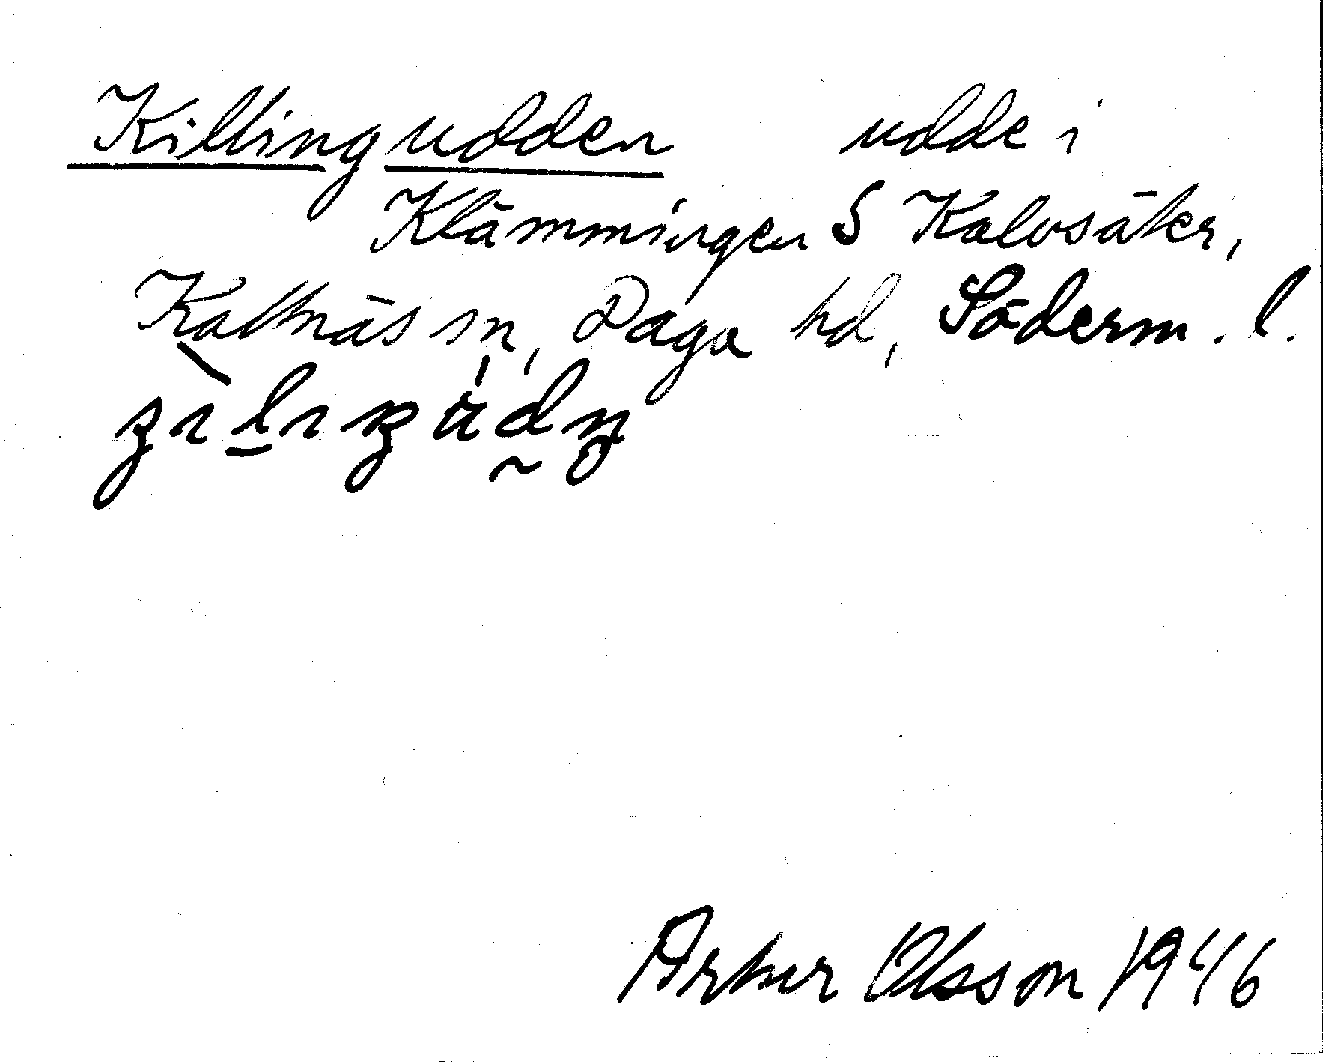 Killingudden udde i
Klämmingen S Kalvsäkr,
Kattnäs sn, Daga hd, Söderm. l.
Artur Olsson 1946